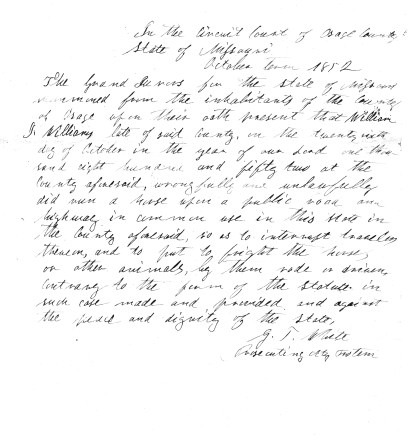 In the Circuit Court of Osage County
State of Missouri
October term 1852
The Grand Jurors for the State of Missouri
summoned from the inhabitants of the County
of Osage upon their oath present that William
J. Williams late of said County, on the twenty sixth
day of October in the year of our Lord one thou
sand eight hundred and fifty two at the
County aforesaid, wrongfully and unlawfully
did run a horse upon a public road and
highway in common use in this state in
the County aforesaid, so as to interrupt travelers
thereon, and to put to fright the horses
or other animals, by them rode or driven,
Contrary to the form of the Statute in
such case made and provided and against
the peace and dignity of the State,
G. T.
Prosecuting Atty